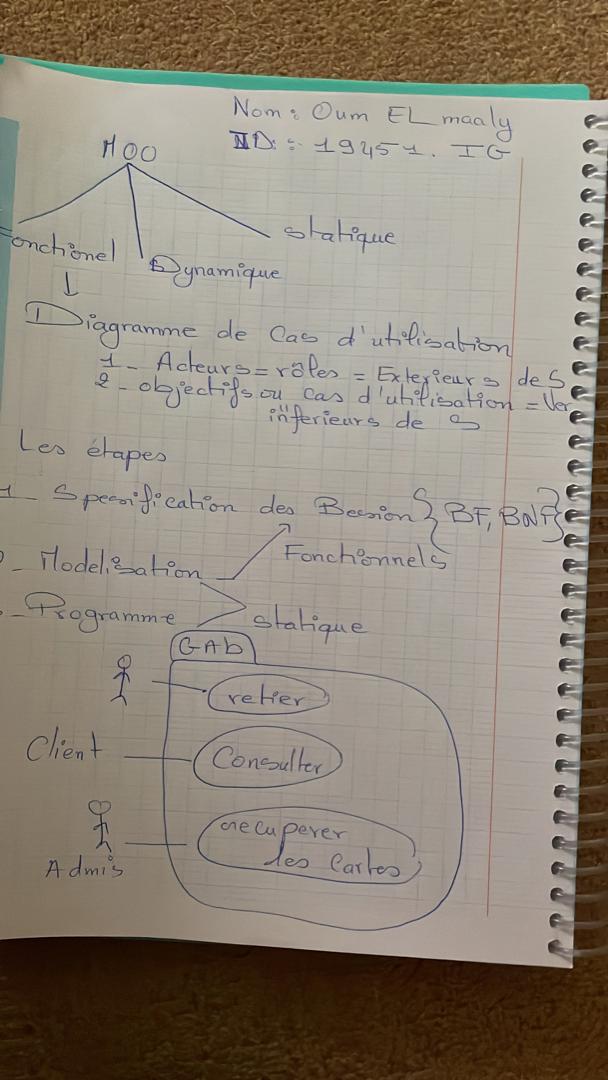 Nom : Oum EL maaly
ID : 19451. IG
MOO
Fonctionel
Dynamique
statique
Diagramme de Cas d'utilisation
1 - Acteurs = rôles = Exterieurs de S
2 - objectifs ou cas d'utilisation = Ver
inferieurs de S
Les étapes
1 - Specification des Besoin { BF, BNF }
Fonctionnels
- Modelisation
- Programme
statique
GAb
retier
Client
Consulter
recuperer
des Cartes
Admis